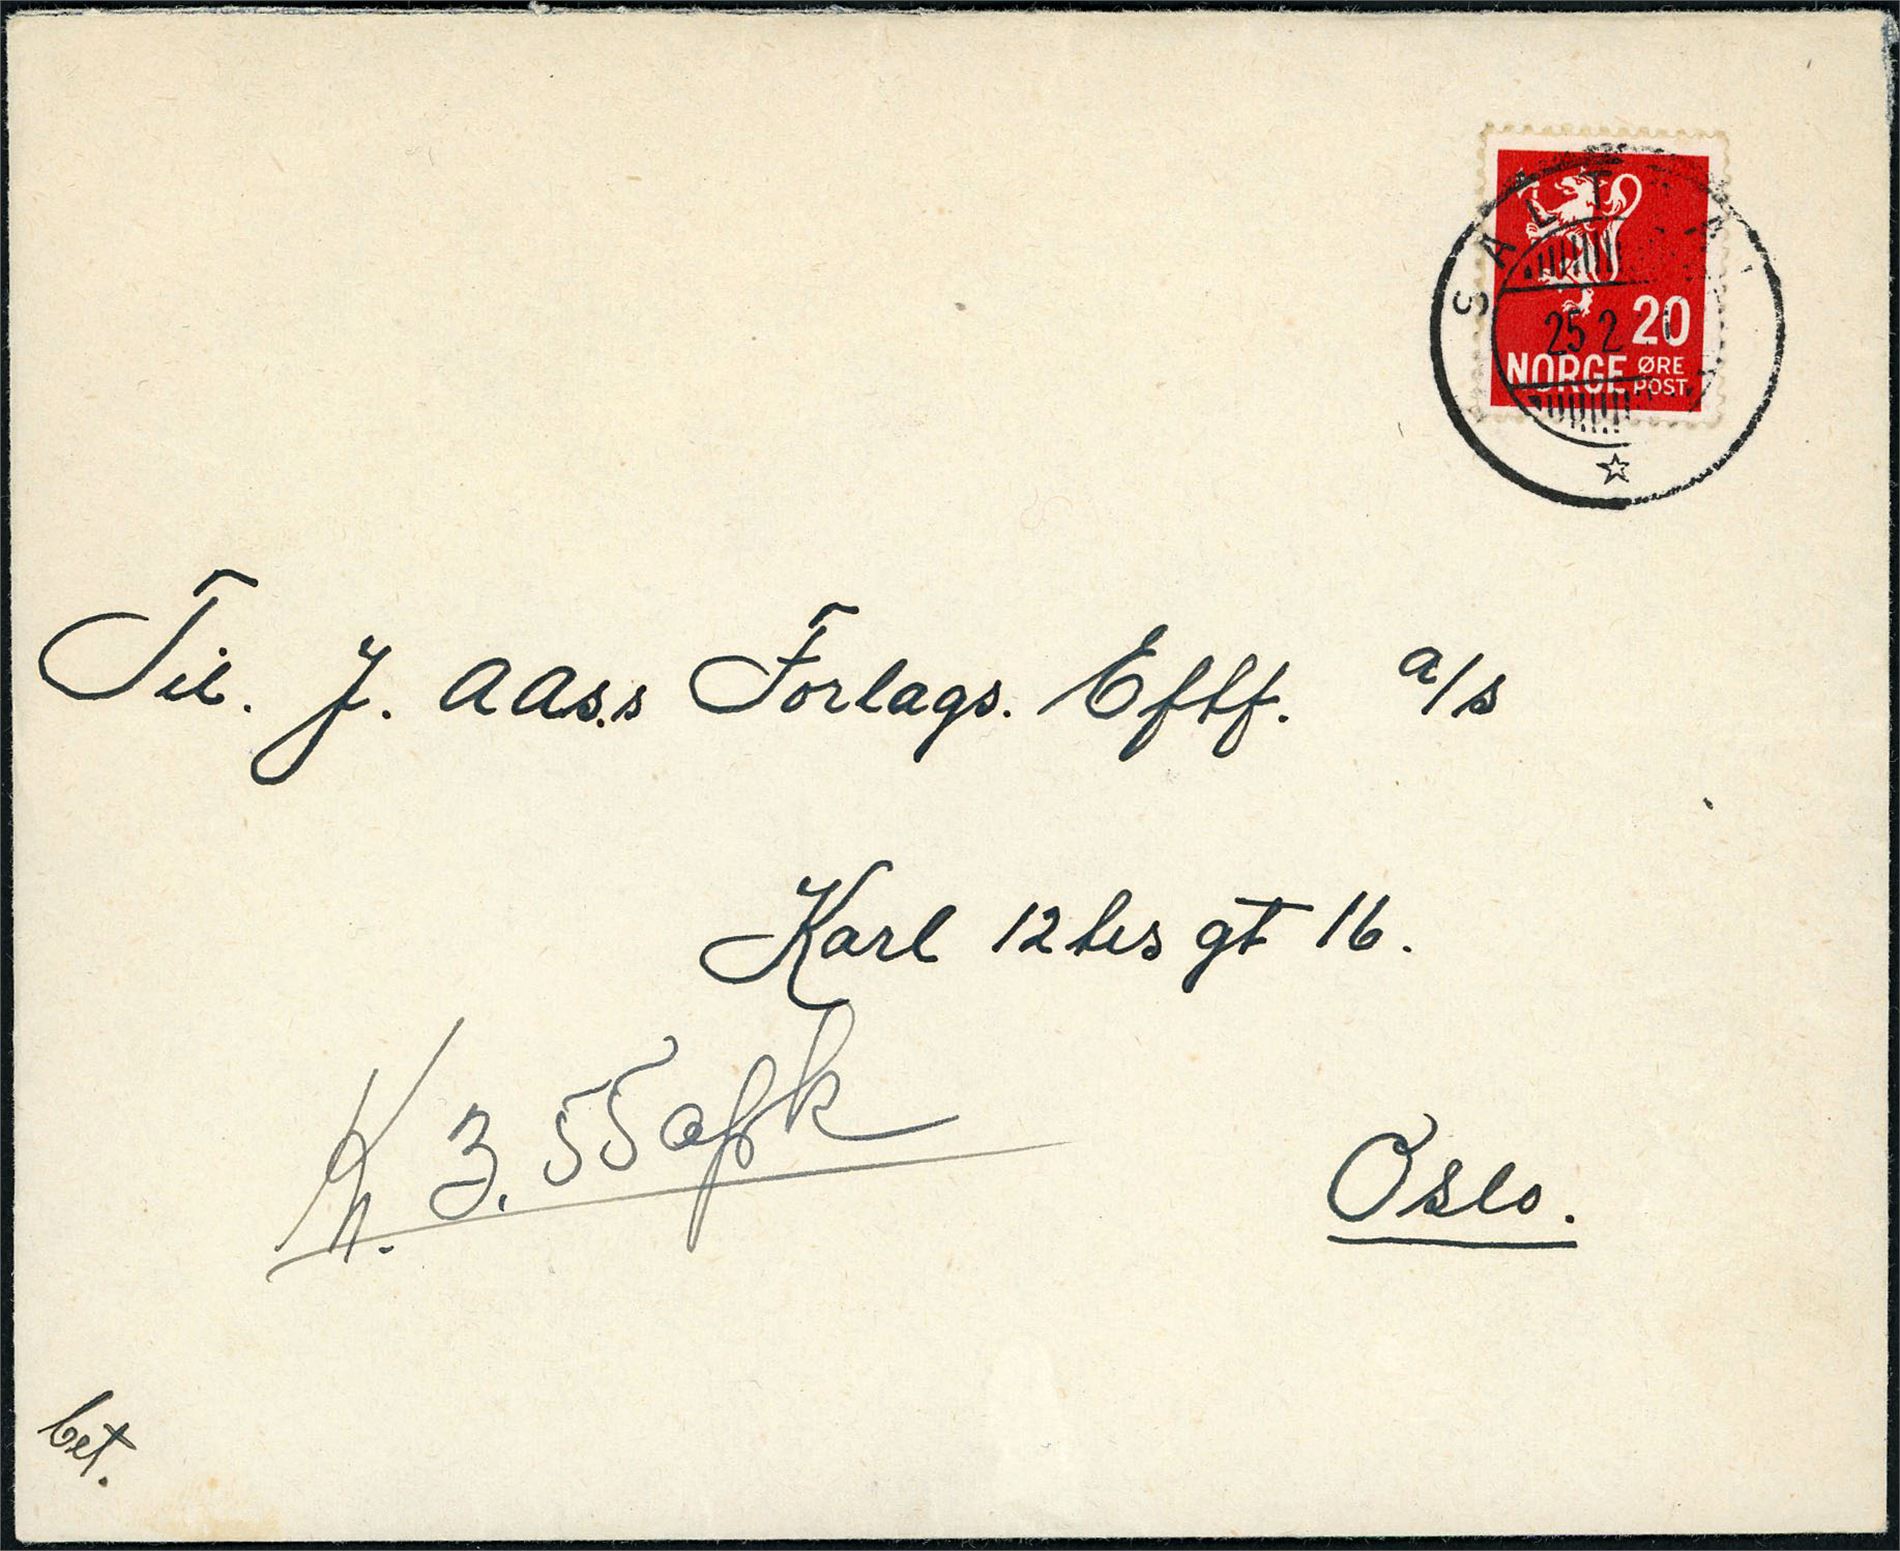 25 2
20
NORGE ØRE
POST
Til. J. AAs.s Forlags. Eftf. a/s
Karl 12tes gt 16.
K. 3.55
Oslo.
bet.